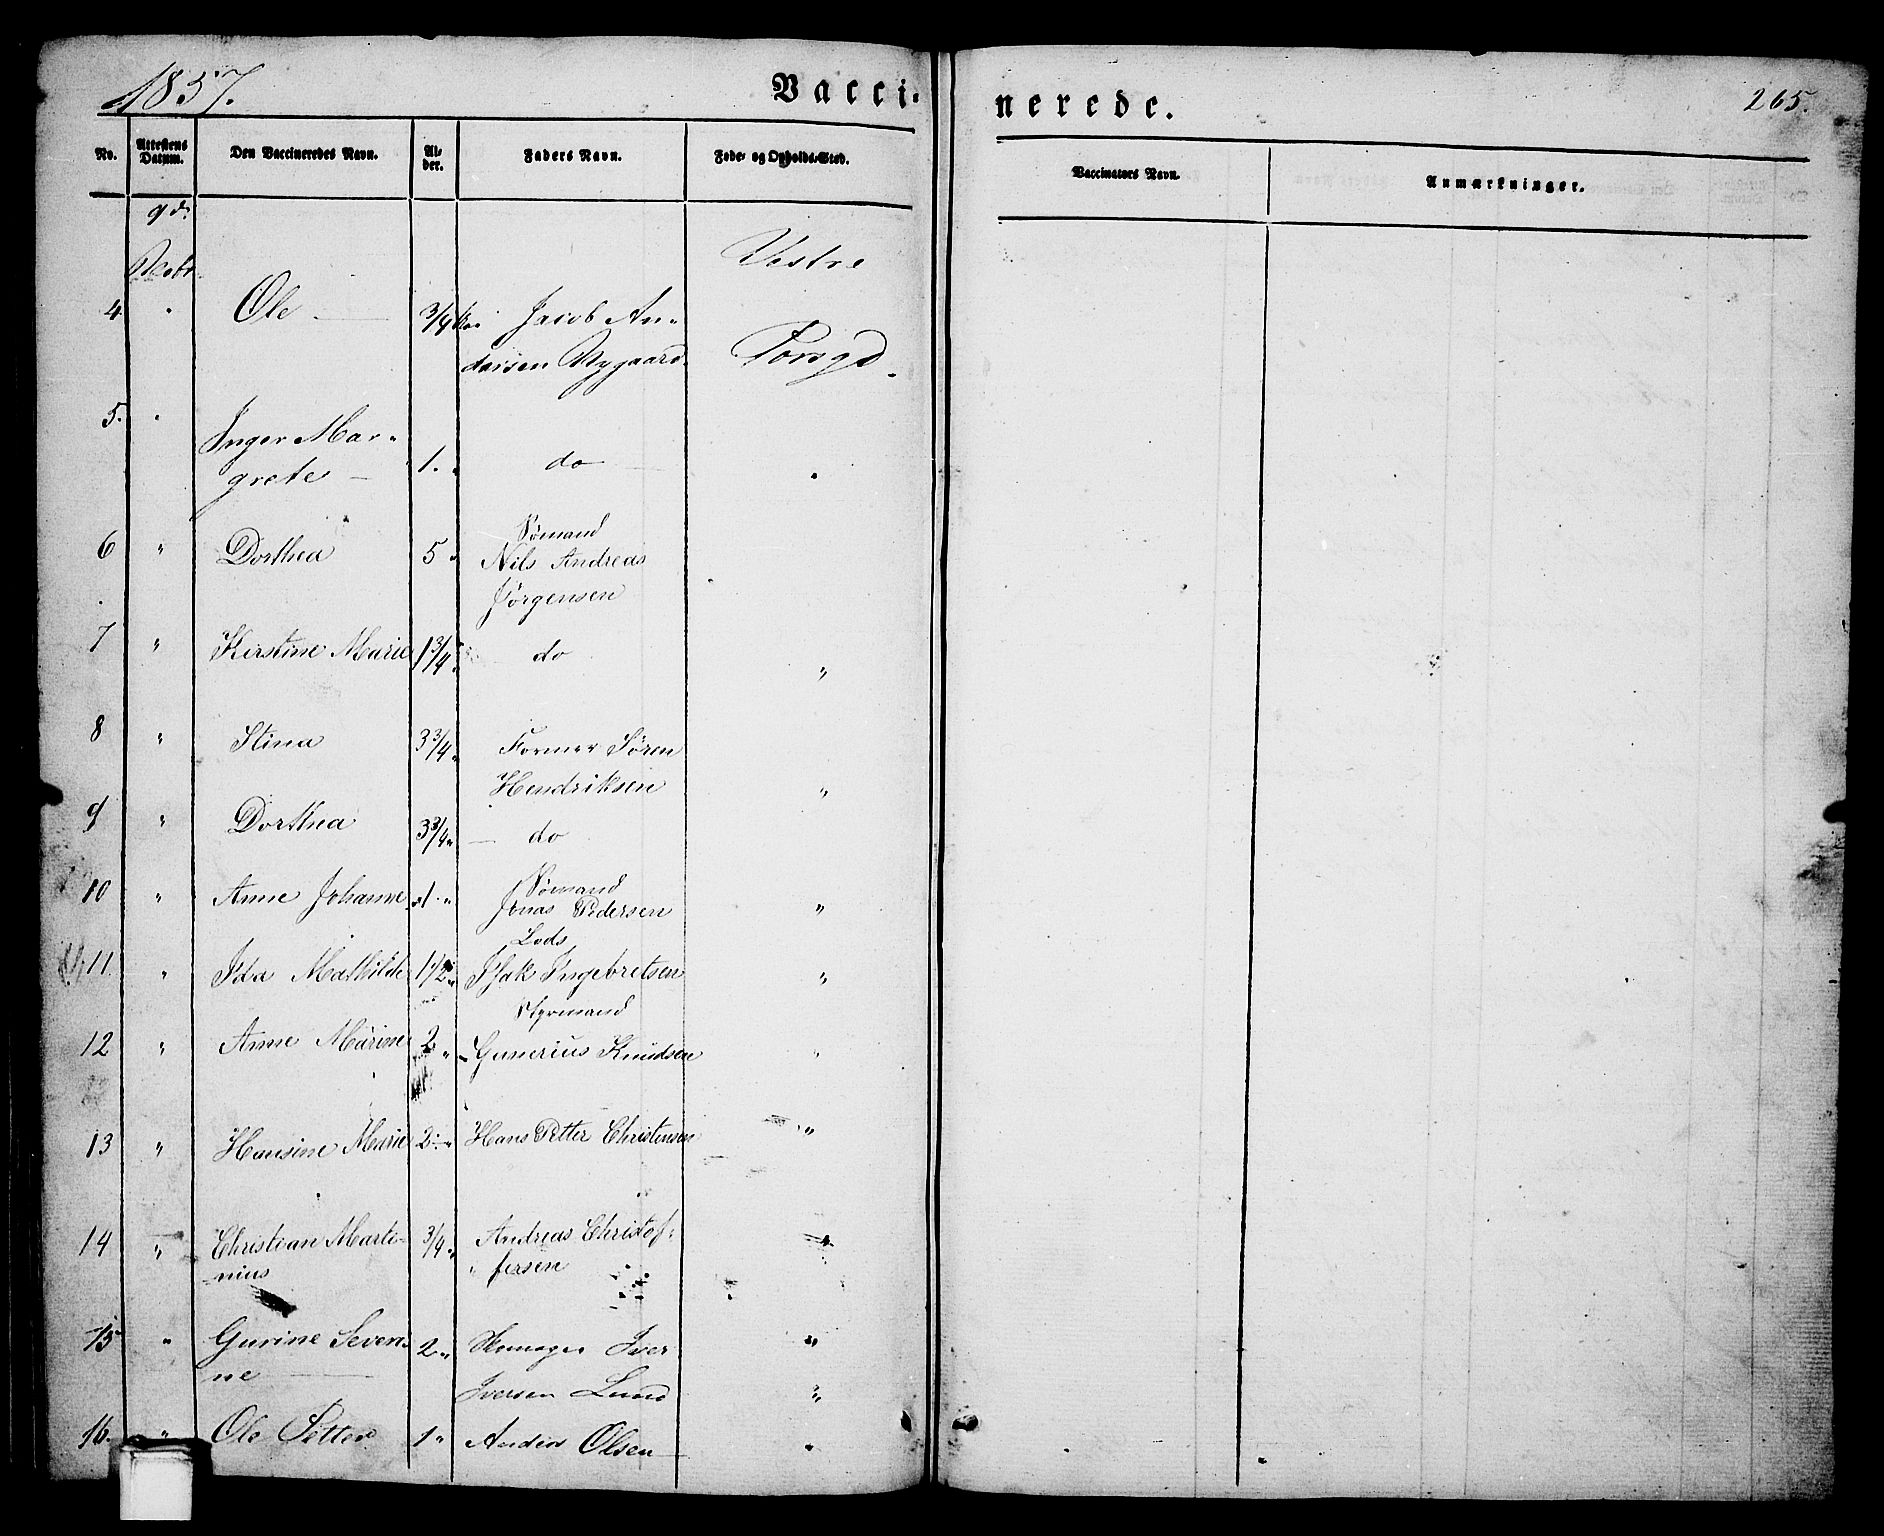 1857.
Vacci-
nerede.
265.
No.
Attestens Datum.
Den Vaccineredes Navn.
Al-
der.
Faders Navn.
Føde- og Opholds-Sted.
Vaccinators Navn.
Anmærkninger.
9d:
Vestre
4 " Ole — 3/4 Jacob An-
dersen Nygaard. Porsgd.
5. " Inger Mar-
grete — 1. " do "
Sømand
6 " Dorthea 5 " Nils Andreas
Jørgensen
7 " Kirstine Marie 1 3/4 " do "
8 " Stina 3 3/4 " Former Søren
Hendriksen "
9 " Dorthea 3 3/4 " — do
Sømand
10 " Anne Johanne 1 " Jonas Pedersen "
Lods
11. " Ida Mathilde 1 1/2 " Isak Ingebretsen "
Styrmand
12 " Anne Marine 2 " Gunerius Knudsen "
13 " Hansine Marie 2 " Hans Petter Christensen "
14 " Christian Marti-
nius 3/4 " Andreas Christof-
fersen "
15 " Gurine Severi-
ne — 2 " Iver
Iversen Lund "
16. " Ole Petter 1 " Anders Olsen — "